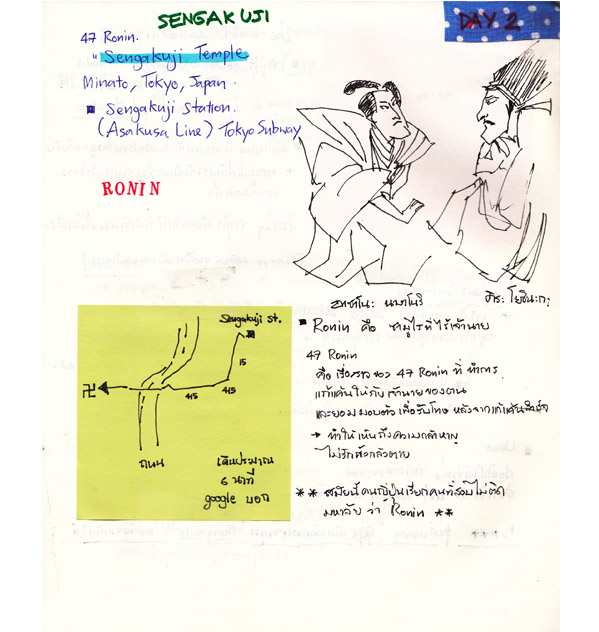 SENGAKUJI
DAY 2
47 Ronin.
" Sengakuji Temple
Minato, Tokyo, Japan.
■ Sengakuji Station.
(Asakusa Line) Tokyo Subway
RONIN
อาซาโนะ นางาโนริ
คิระ โยชินะกะ
■ Ronin คือ ซามูไรที่ไร้เจ้านาย
47 Ronin
คือ เรื่องราวของ 47 Ronin ที่ ทำการ
แก้แค้นให้กับเจ้านายของตน
และยอมมอบตัวเพื่อรับโทษ หลังจากแก้แค้นสำเร็จ
→ ทำให้เห็นถึงความกล้าหาญ
ไม่รักตัวกลัวตาย
** สมัยนี้คนญี่ปุ่นเรียกคนที่สอบไม่ติด
มหาลัย ว่า Ronin **
Sengakuji St.
15
415
415
卍
ถนน
เดินประมาณ
6 นาที
google บอก